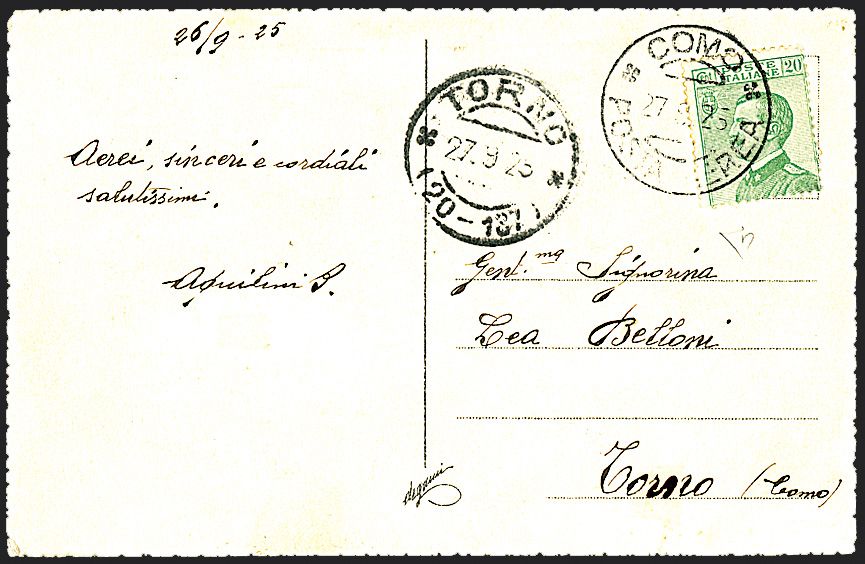 26/9 - 25
Aerei, sinceri e cordiali
salutissimi.
Aquilini S.
TORNO
27.9.25
(20-187)
COMO
27.9.25
POSTA AEREA
POSTE
ITALIANE 20
Gent.ma Signorina
Lea Belloni
Torno (Como)